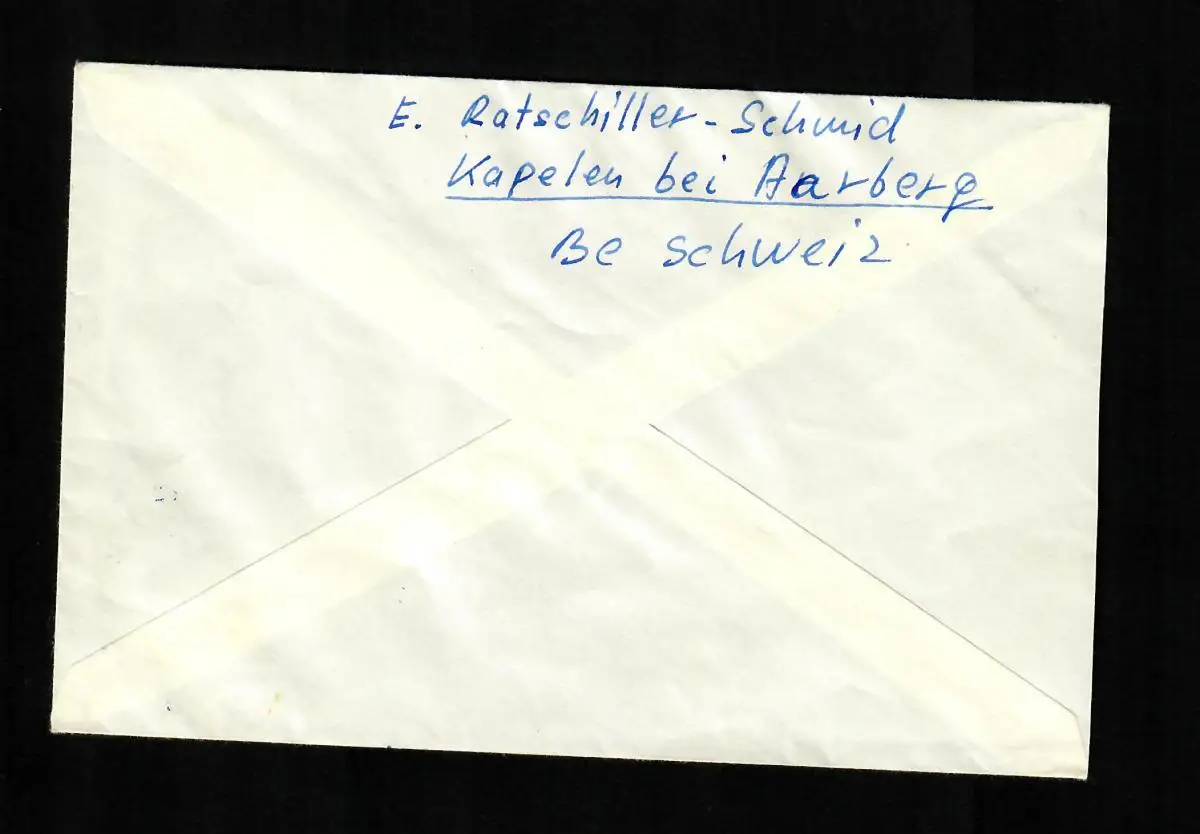 E. Ratschiller-Schmid
Kapelen bei Aarberg
Be Schweiz